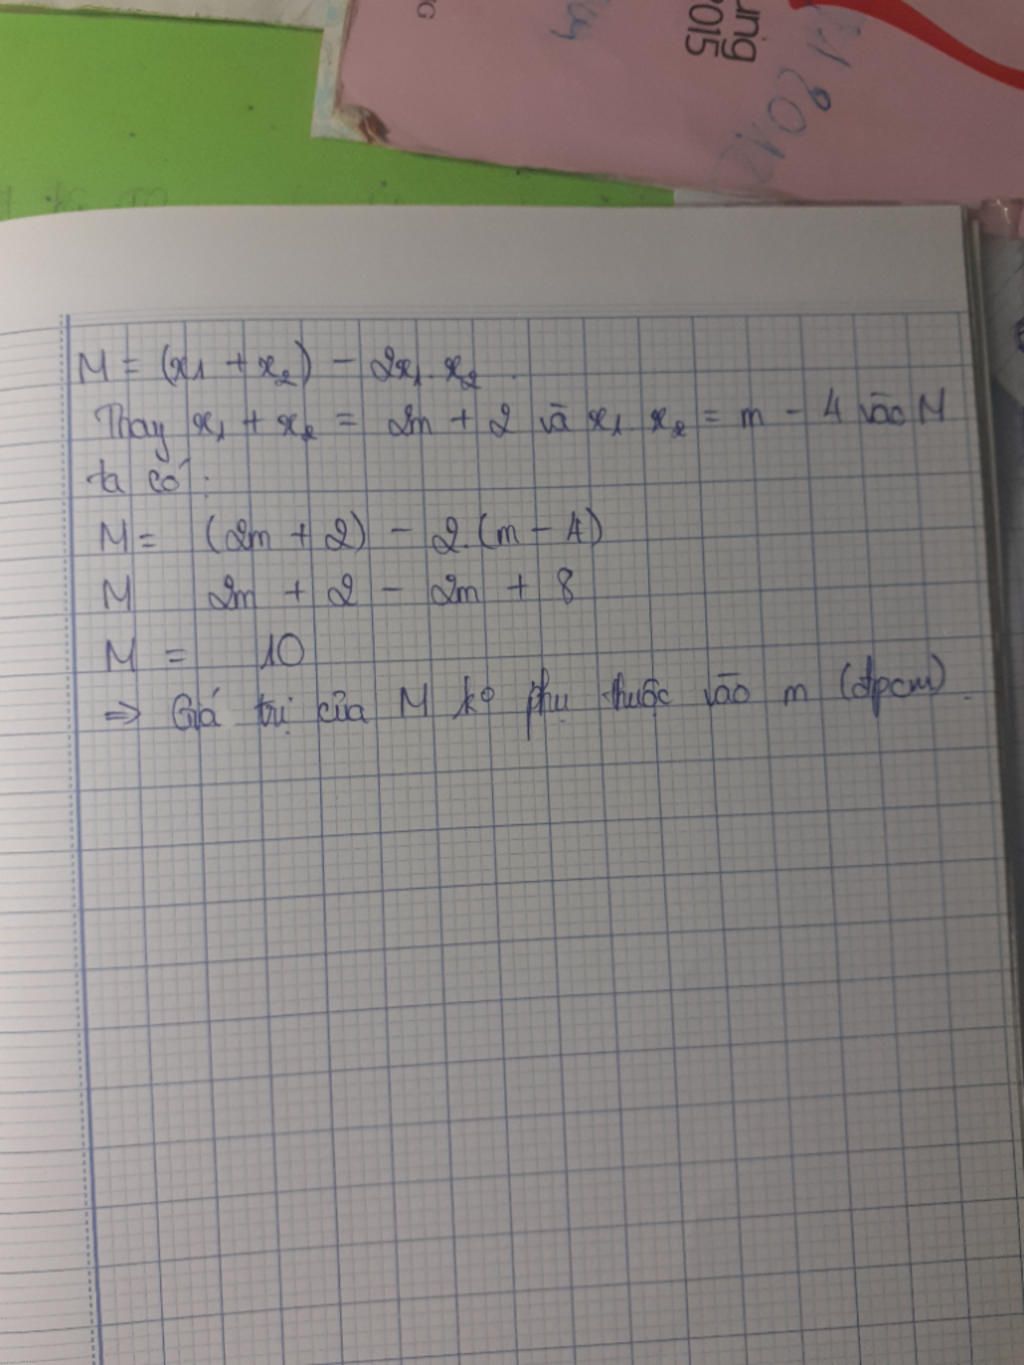 ung
2015
G
M = (x₁ + x₂) - 2x₁.x₂.
Thay x₁ + x₂ = 2m + 2 và x₁.x₂ = m - 4 vào M
ta có:
M = (2m + 2) - 2.(m - 4)
M 2m + 2 - 2m + 8
M = 10
⇒ Giá trị của M ko phụ thuộc vào m (đpcm).